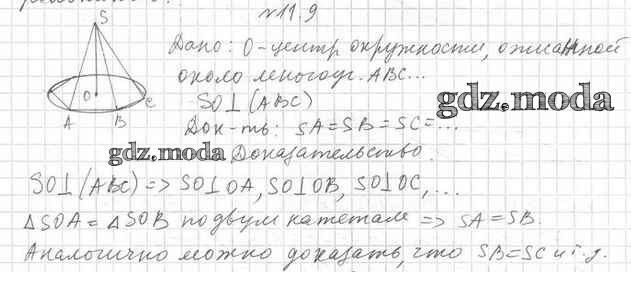 №11.9
S
Дано: О-центр окружности, описанной
около многоуг. ABC...
O
C
A
B
SO⊥(ABC)
gdz.moda
Док-ть: SA=SB=SC=...
gdz.moda
Доказательство.
SO⊥(ABC) => SO⊥OA, SO⊥OB, SO⊥OC, ...
△SOA = △SOB по двум катетам => SA=SB.
Аналогично можно доказать, что SB=SC и т.д.